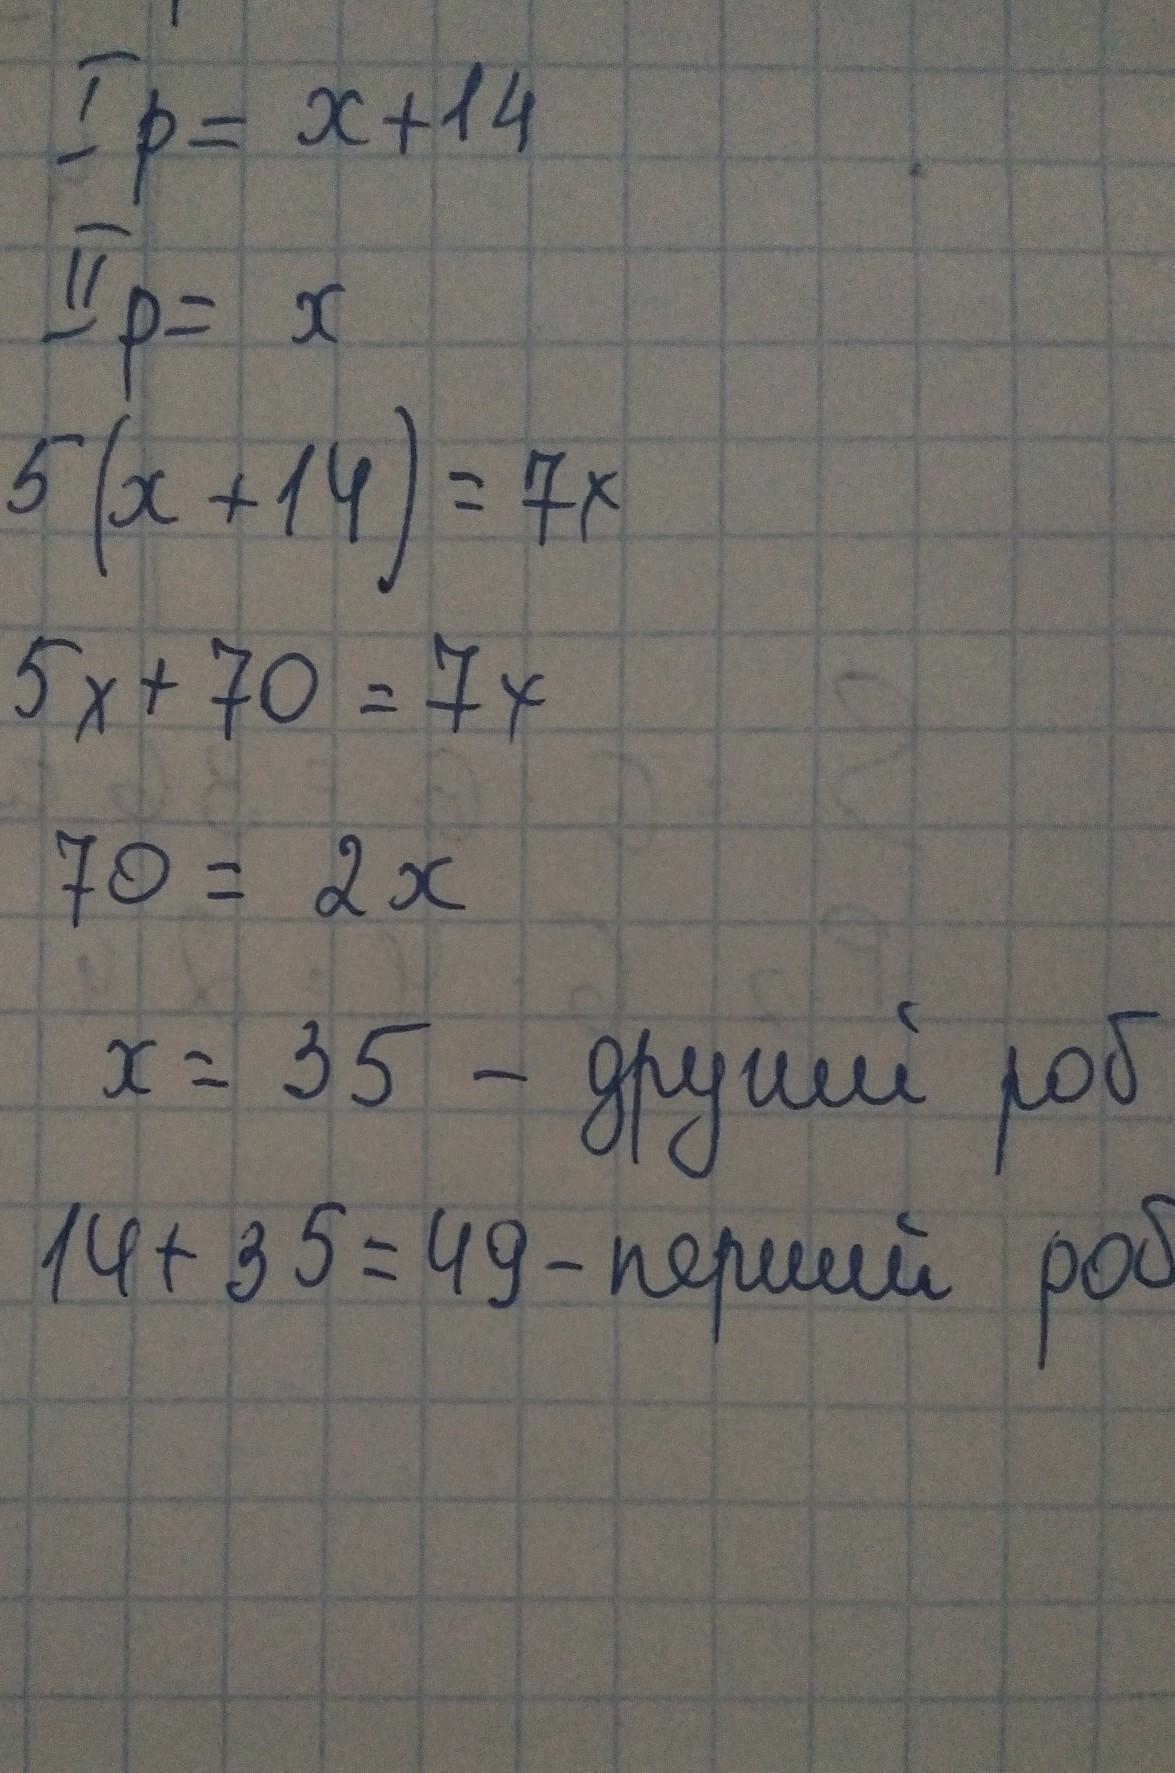 I р = x+14
II р = x
5(x+14) = 7x
5x+70 = 7x
70 = 2x
x = 35 - другий роб
14+35=49-перший роб